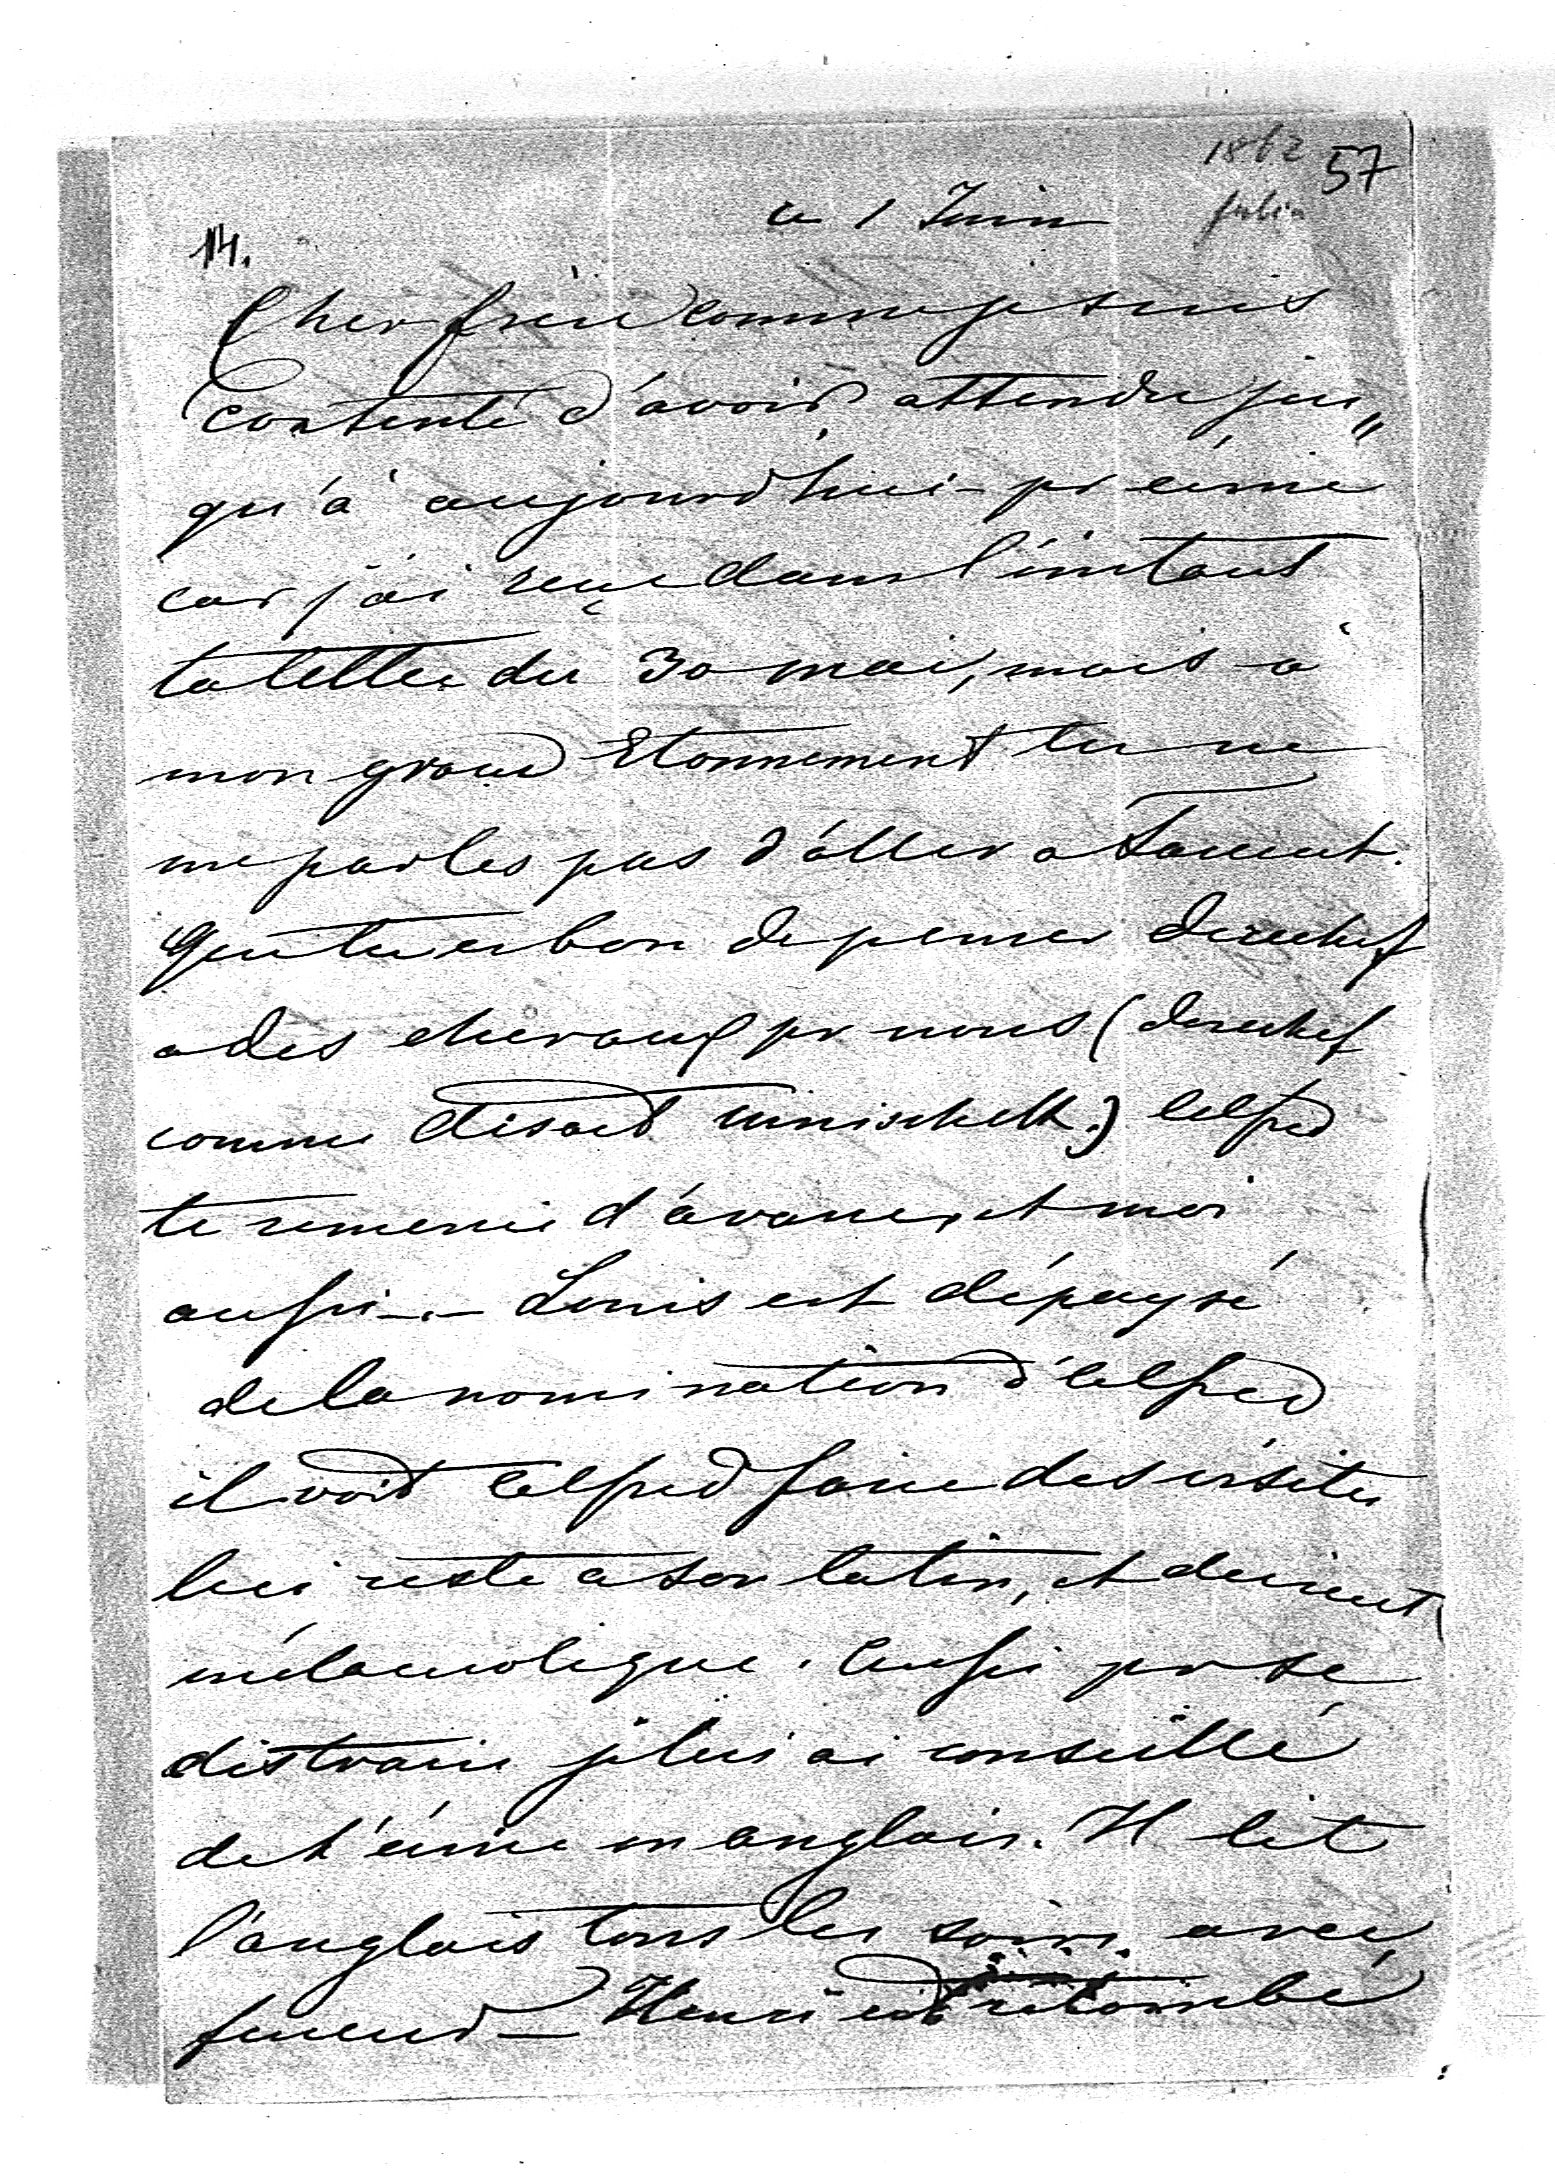 1862 57
ce 1 Juin
14.
Cher frère comme je suis
contente d'avoir attendu jus„
qu'à aujourd'hui pr écrire
car j'ai reçue dans l'instant
ta lettre du 30 mai, mais à
mon grand Etonnement tu ne
me parles pas d'aller a
Que tu es bon de penser derechef
a des chevaux pr nous (derechef
comme disait) Alfred
te remercie d'avance, et moi
aussi -.- Louis est dépaysé
de la nomination d'Alfred
il voit Alfred faire des visites
lui reste a son latin, et devient
mélancolique. Aussi pr se
distraire je lui ai conseillé
de t'écrire en anglais. Il lit
l'anglais tous les soirs avec
fureur - Henri est retombé